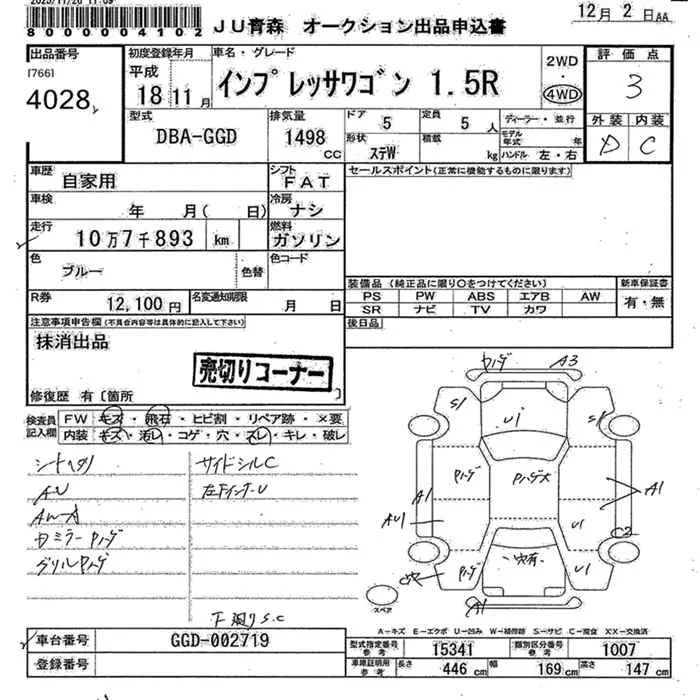 2025/11/26 11:09
80000004102
JU青森 オークション出品申込書
12月2日AA
出品番号
17661
4028
初度登録年月
平成
18 11月
車名・グレード
インプレッサワゴン 1.5R
2WD
・
4WD
評価点
3
外装 内装
D C
型式
DBA-GGD
排気量
1498
CC
ドア
5
定員
5人
形状
ステW
積載
kg
ディーラー・並行
モデル年式 年
ハンドル 左・右
車歴
自家用
シフト
FAT
セールスポイント(正常に機能するものに限ります)
車検
年 月( 日)
冷房
ナシ
走行
10万7千893 km
燃料
ガソリン
色
ブルー
色替
色コード
R券
12,100円
名変通知期限
月 日
装備品(純正品に限り○をつけてください)
PS PW ABS エアB AW
SR ナビ TV カワ
新車保証書
有・無
後日品
注意事項申告欄(不具合内容等は具体的に記入して下さい)
抹消出品
売切りコーナー
修復歴 有〔箇所 〕
検査員記入欄
FW キズ・飛石・ヒビ割・リペア跡・×要
内装 キズ・汚レ・コゲ・穴・スレ・キレ・破レ
シートヘタリ
AU
サイドシルC
左下インナーU
ドミラーPハゲ
グリルPハゲ
下廻りS.C
A3
S1
U1
S1
Pハゲ
Pハゲ大
A1
A1
AU1
U1
C2
穴有
Pハゲ
U1
A1
スペア
A-キズ E-エクボ U-凹み W-補修跡 S-サビ C-腐食 XX-交換済
車台番号
GGD-002719
登録番号
型式指定番号参考
15341
類別区分番号参考
1007
車庫証明用参考
長さ 446cm 幅 169cm 高さ 147cm